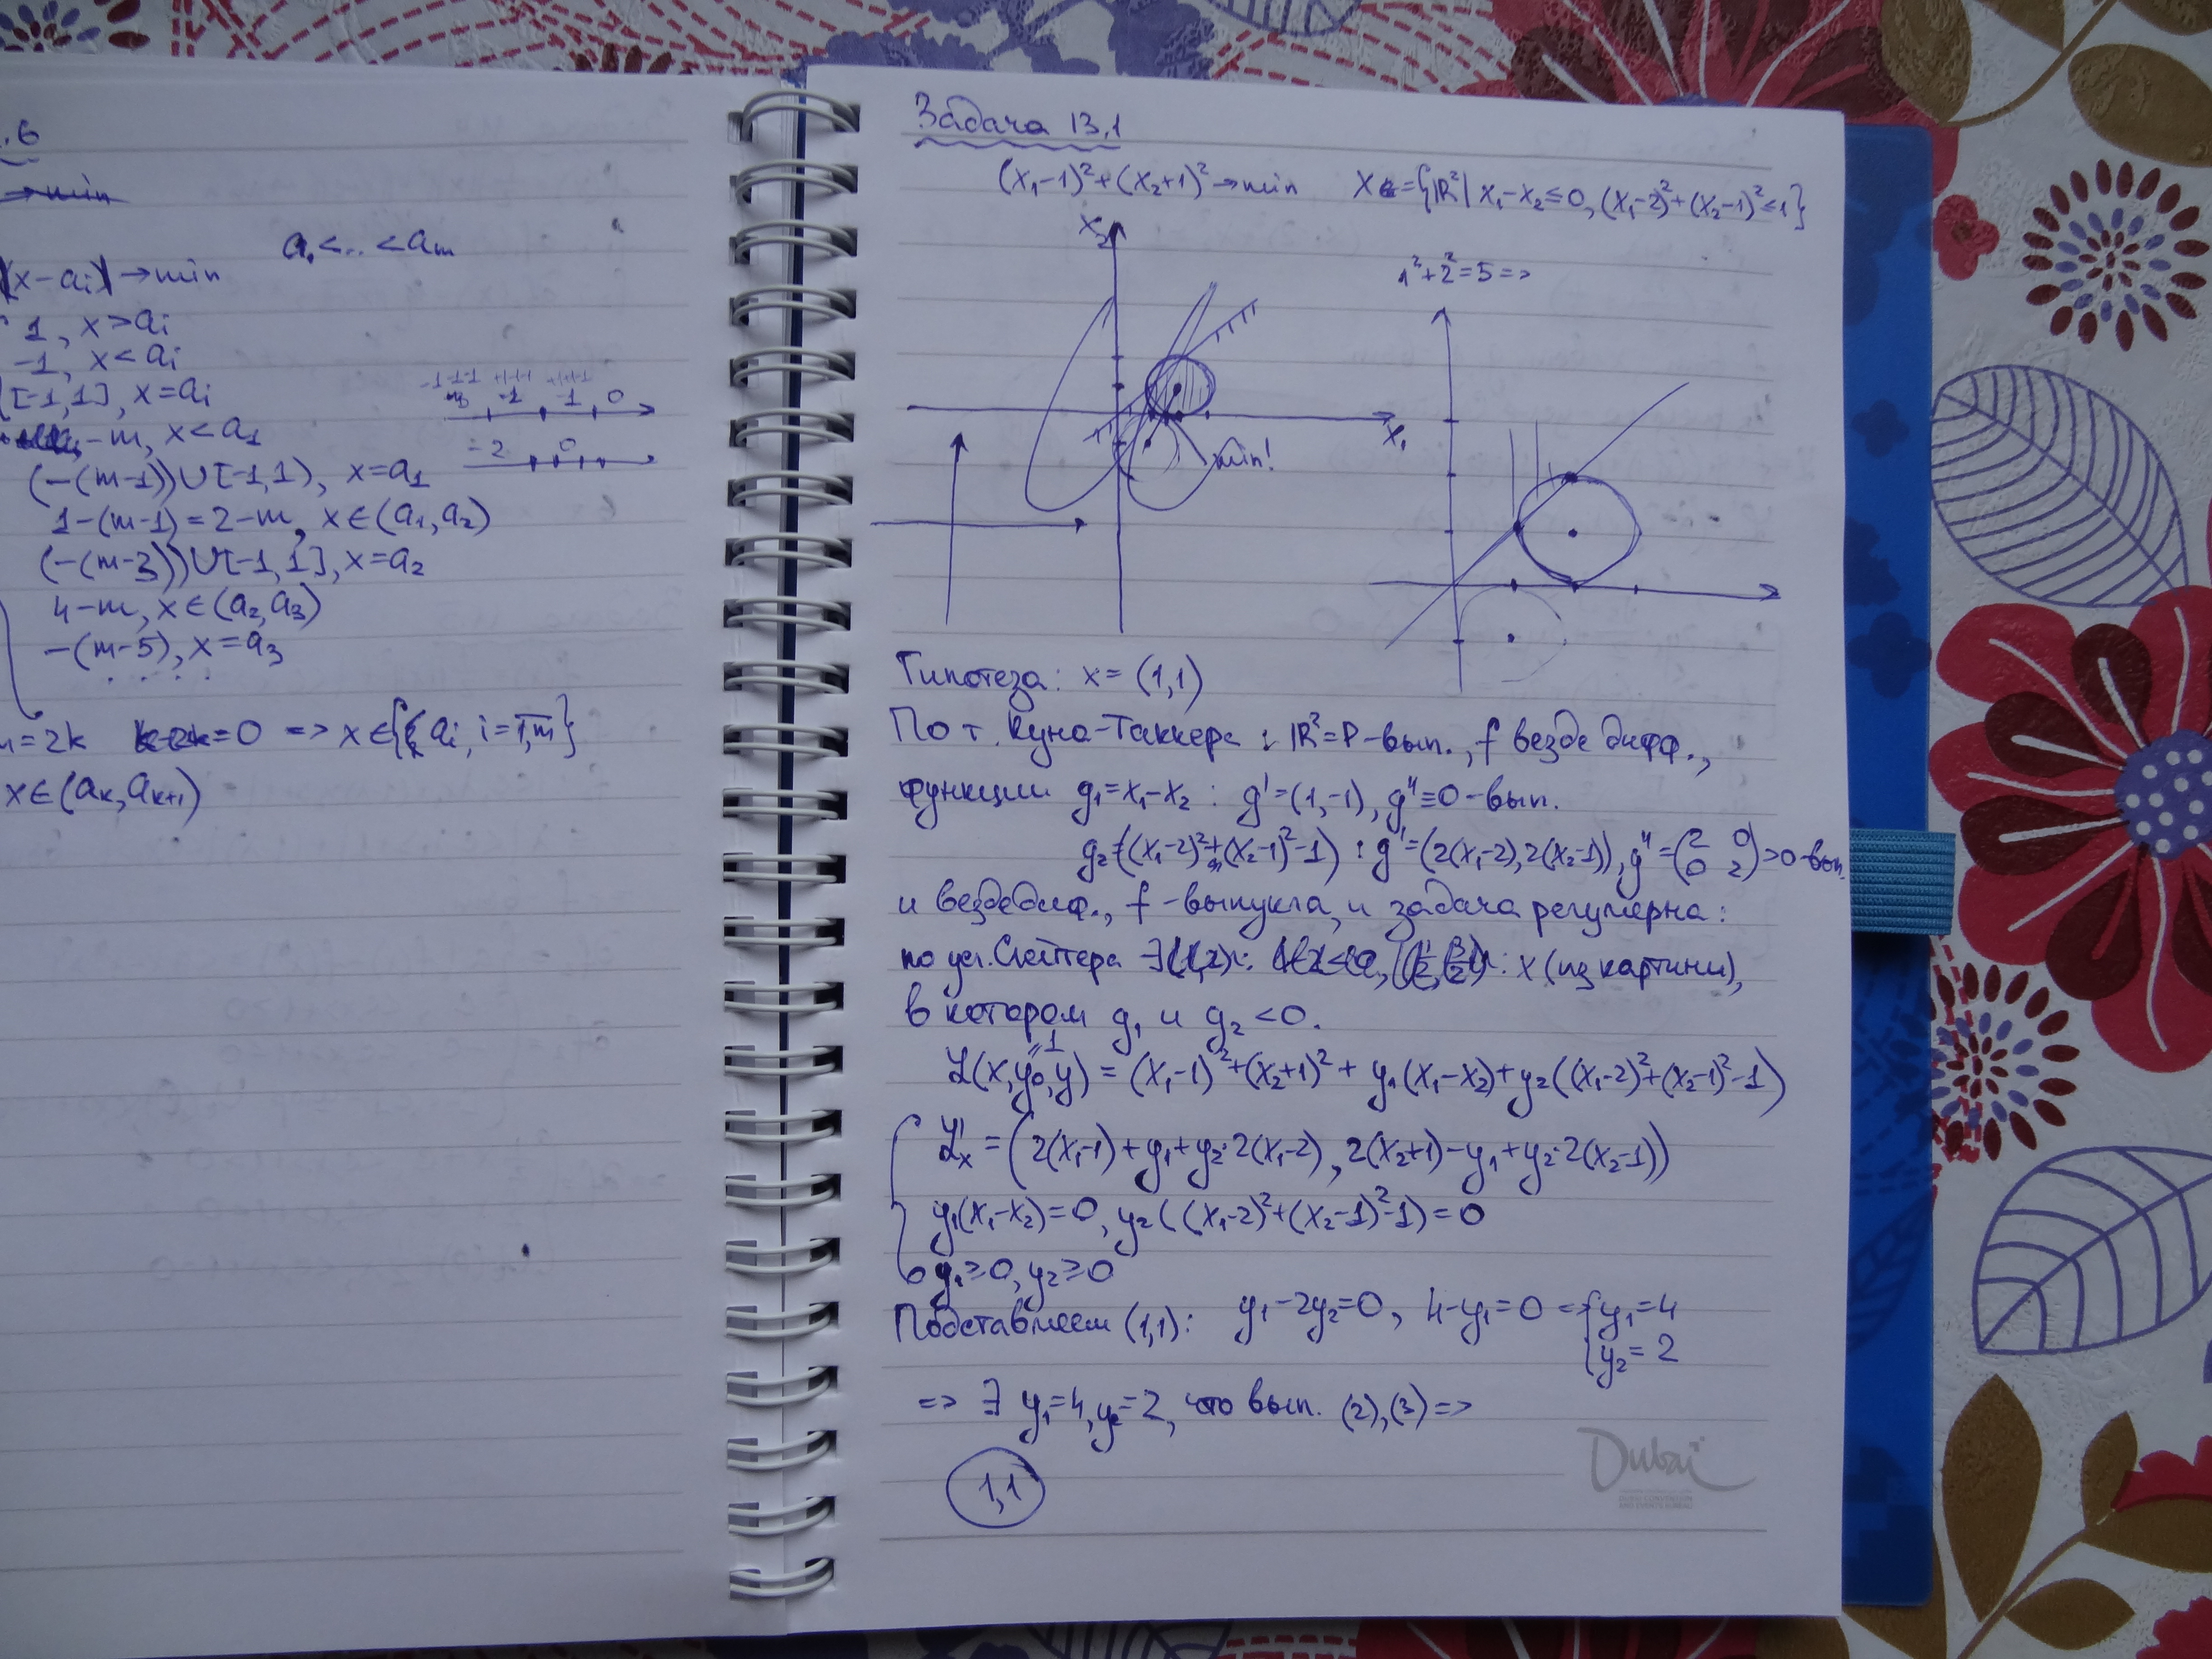 .6
→min
a₁<...<aₘ
(x-aᵢ) →min
1, x>aᵢ
-1, x<aᵢ
[-1,1], x=aᵢ
-m, x<a₁
(-(m-1))∪[-1,1), x=a₁
1-(m-1)=2-m, x∈(a₁,a₂)
(-(m-3))∪[-1,1], x=a₂
4-m, x∈(a₂,a₃)
-(m-5), x=a₃
. . . .
-1-1-1 +1-1-1 +1+1-1
-1 1 0
-2 0
=2k =0 => x∈{aᵢ, i=1,m}
x∈(aₖ,aₖ₊₁)
Задача 13.1
(x₁-1)²+(x₂+1)²→min X={ℝ²| x₁-x₂≤0, (x₁-2)²+(x₂-1)²≤1}
x₂
1²+2²=5 =>
x₁
min!
Гипотеза: x= (1,1)
По т. Куна-Таккера : ℝ²=P-вып., f везде дифф.,
функции g₁=x₁-x₂ : g'=(1,-1), g''≡0-вып.
g₂=((x₁-2)²+(x₂-1)²-1) : g'=(2(x₁-2),2(x₂-1)), g''=(2 0 0 2)>0-вып.
и вездедиф., f-выпукла, и задача регулярна:
по усл. Слейтера ∃ x (из картины),
в котором g₁ и g₂ <0.
ℒ(x,y₀,y) = (x₁-1)²+(x₂+1)² + y₁(x₁-x₂)+y₂((x₁-2)²+(x₂-1)²-1)
"1
ℒ'ₓ = (2(x₁-1)+y₁+y₂·2(x₁-2), 2(x₂+1)-y₁+y₂·2(x₂-1))
y₁(x₁-x₂)=0, y₂((x₁-2)²+(x₂-1)²-1)=0
y₁≥0, y₂≥0
Подставляем (1,1): y₁-2y₂=0, 4-y₁=0 => {y₁=4
y₂=2
=> ∃ y₁=4, y₂=2, что вып. (2),(3) =>
1,1
Dubai